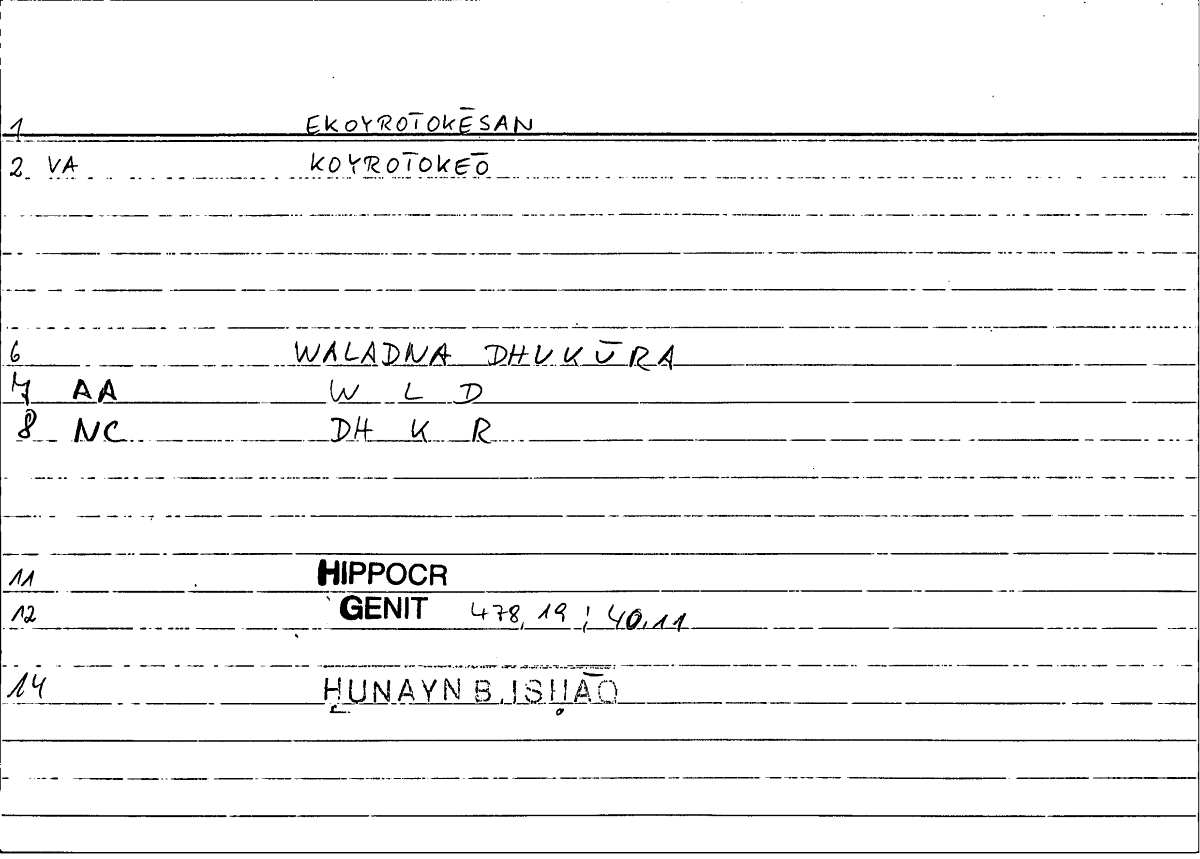 1 EKOYRŌTOKĒSAN
2 VA KOYRŌTOKEŌ
6 WALADNA DHUKŪRA
7 AA W L D
8 NC DH K R
11 HIPPOCR
12 GENIT 478,19 ; 40,11
14 ḤUNAYN B.ISḤĀQ